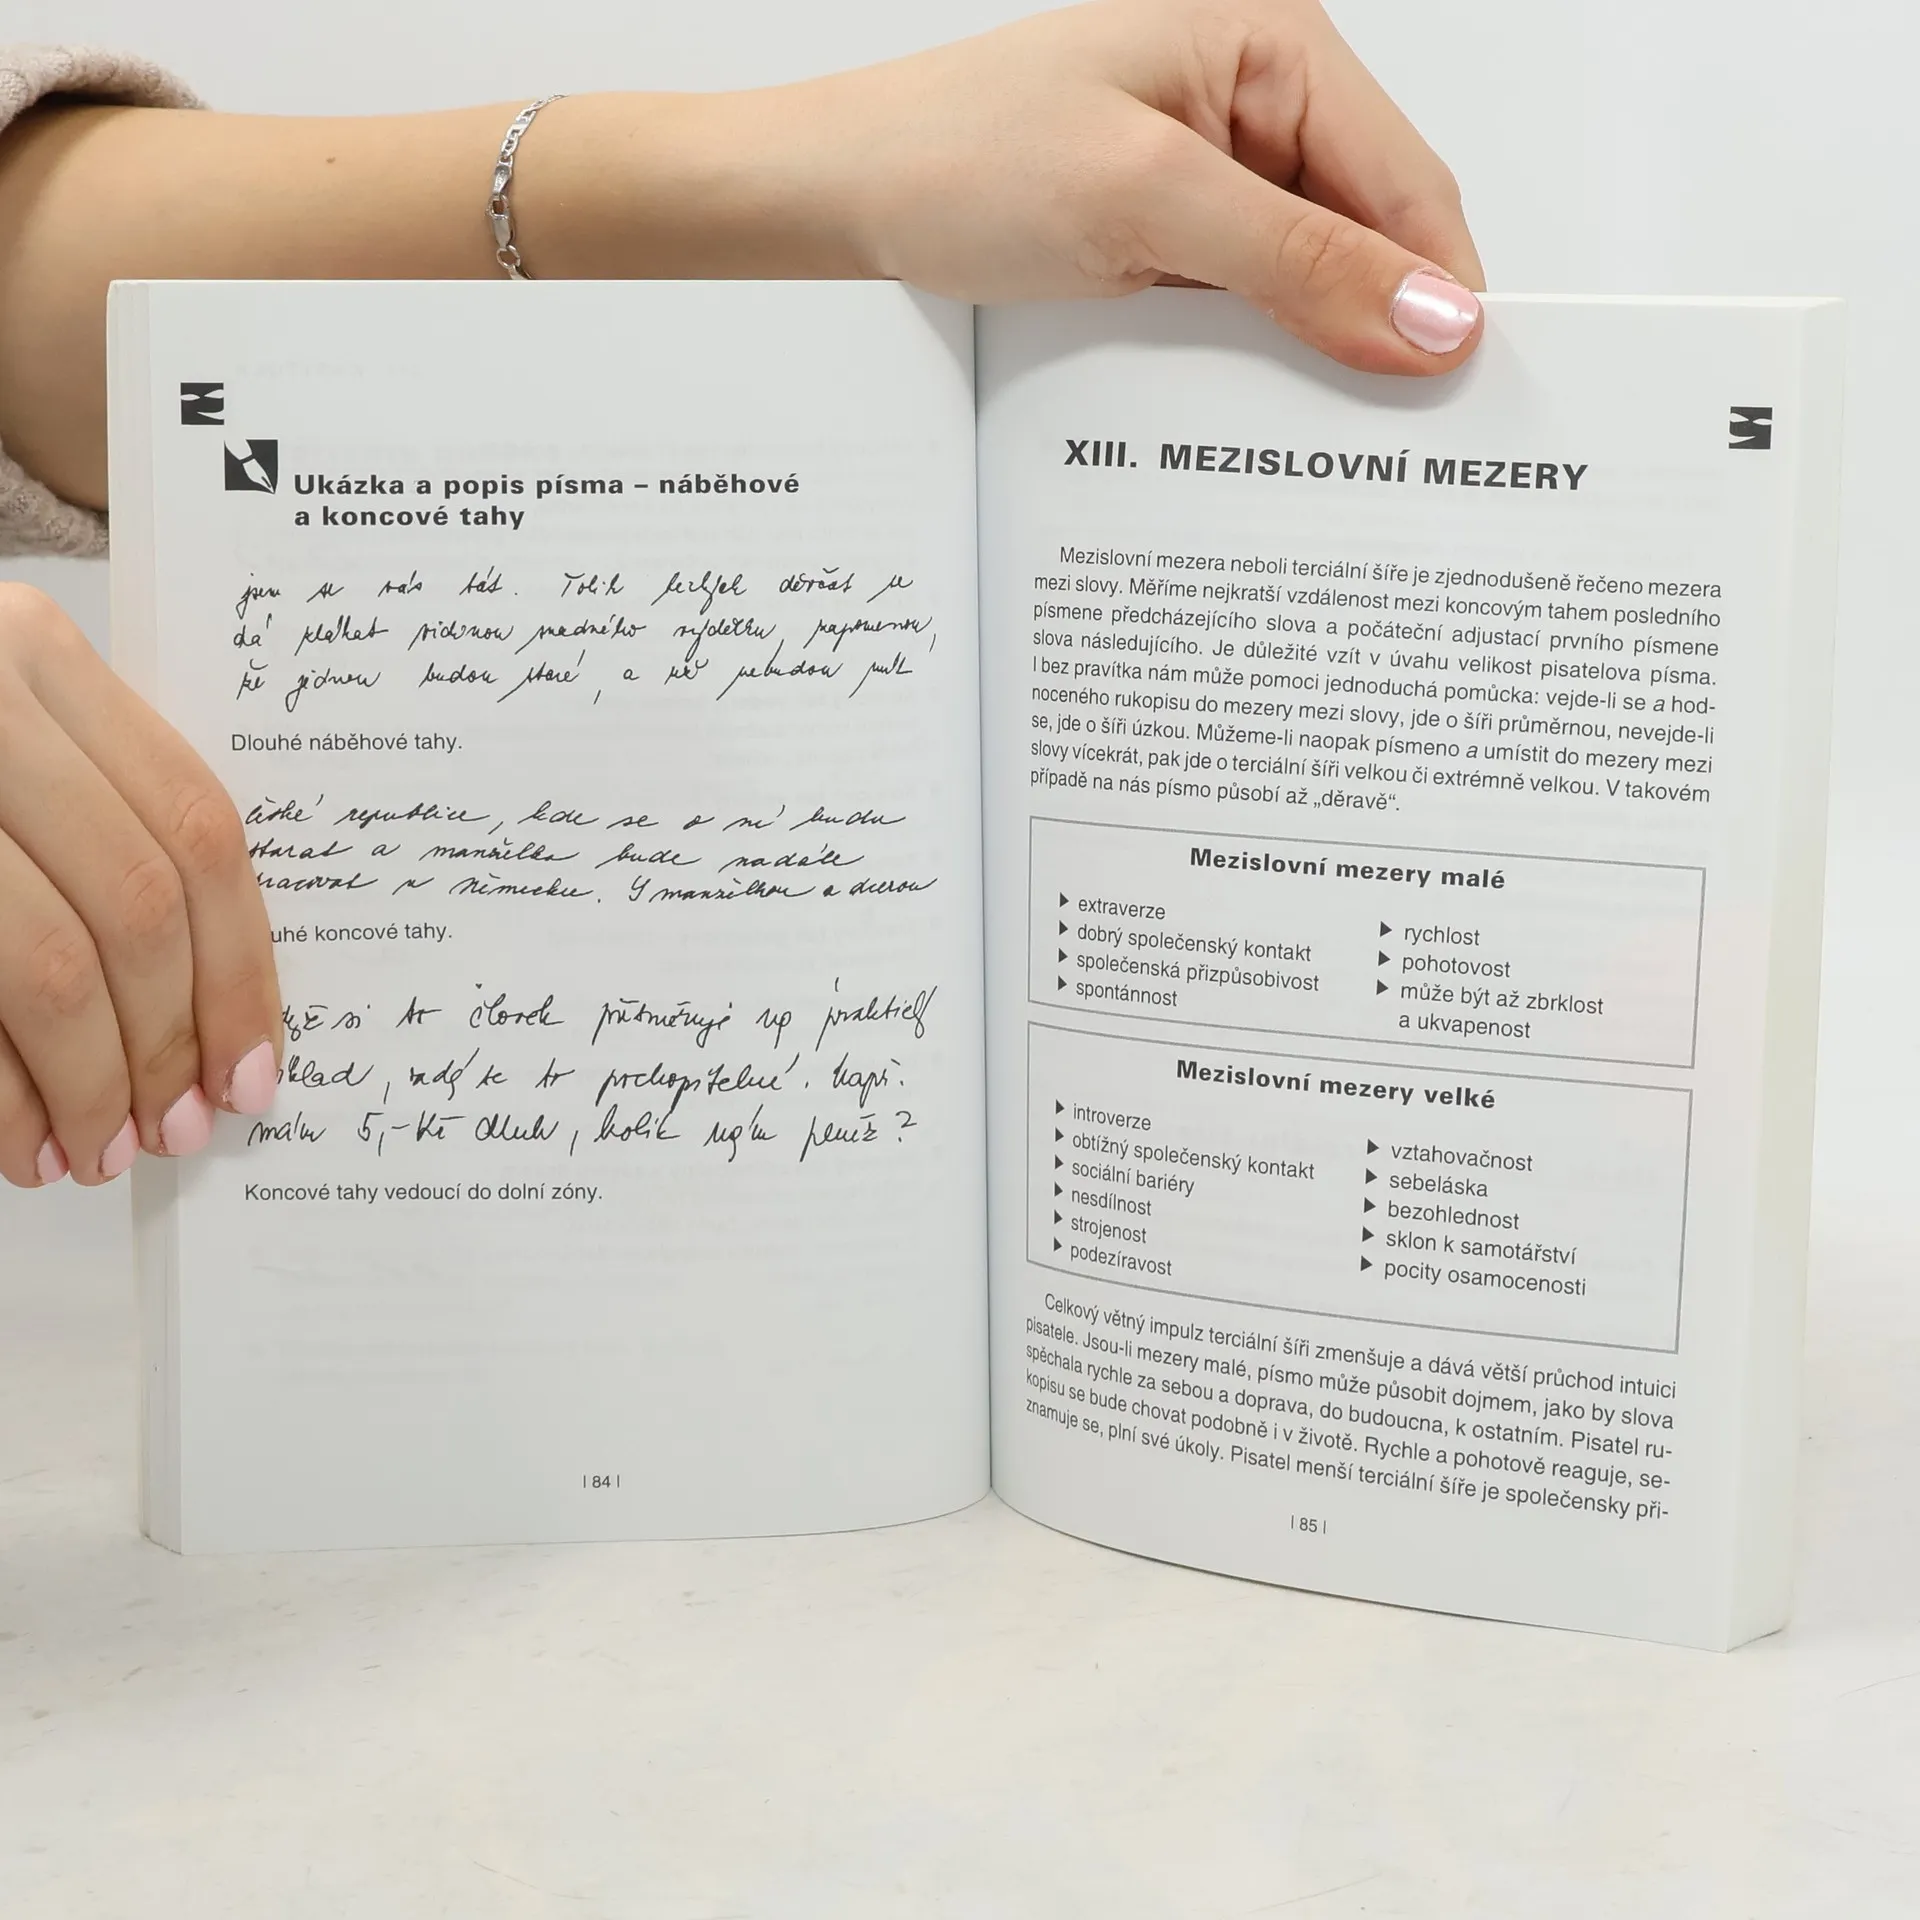 Ukázka a popis písma – náběhové
a koncové tahy
jsem se vás tát. Tolik lechjch děvčat se
dá plakat vidinou snadného výdělku, zapomenou,
že jednou budou staré, a už nebudou mít
Dlouhé náběhové tahy.
české republice, kde se o ní budu
starat a manželka bude nadále
pracovat v Německu. S manželkou a dcerou
uhé koncové tahy.
si to človek přirovnuje na praktický
klad, zdá se to pochopitelné. Např.
mám 5,- Kč dluh, kolik mám peněz?
Koncové tahy vedoucí do dolní zóny.
| 84 |
XIII. MEZISLOVNÍ MEZERY
Mezislovní mezera neboli terciální šíře je zjednodušeně řečeno mezera
mezi slovy. Měříme nejkratší vzdálenost mezi koncovým tahem posledního
písmene předcházejícího slova a počáteční adjustací prvního písmene
slova následujícího. Je důležité vzít v úvahu velikost pisatelova písma.
I bez pravítka nám může pomoci jednoduchá pomůcka: vejde-li se a hod-
noceného rukopisu do mezery mezi slovy, jde o šíři průměrnou, nevejde-li
se, jde o šíři úzkou. Můžeme-li naopak písmeno a umístit do mezery mezi
slovy vícekrát, pak jde o terciální šíři velkou či extrémně velkou. V takovém
případě na nás písmo působí až „děravě“.
Mezislovní mezery malé
extraverze
dobrý společenský kontakt
společenská přizpůsobivost
spontánnost
rychlost
pohotovost
může být až zbrklost
a ukvapenost
Mezislovní mezery velké
introverze
obtížný společenský kontakt
sociální bariéry
nesdílnost
strojenost
podezíravost
vztahovačnost
sebeláska
bezohlednost
sklon k samotářství
pocity osamocenosti
Celkový větný impulz terciální šíři zmenšuje a dává větší průchod intuici
pisatele. Jsou-li mezery malé, písmo může působit dojmem, jako by slova
spěchala rychle za sebou a doprava, do budoucna, k ostatním. Pisatel ru-
kopisu se bude chovat podobně i v životě. Rychle a pohotově reaguje, se-
znamuje se, plní své úkoly. Pisatel menší terciální šíře je společensky při-
| 85 |